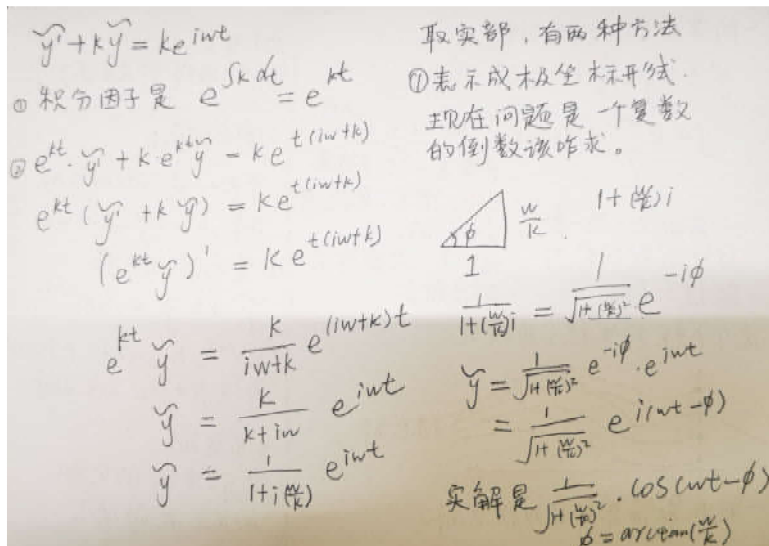 ỹ' + kỹ = ke^{iwt}
① 积分因子是 e^{∫k dt} = e^{kt}
② e^{kt}·ỹ' + k·e^{kt}ỹ = ke^{t(iw+k)}
e^{kt}(ỹ' + kỹ) = ke^{t(iw+k)}
(e^{kt}ỹ)' = ke^{t(iw+k)}
e^{kt}ỹ = \frac{k}{iw+k} e^{(iw+k)t}
ỹ = \frac{k}{k+iw} e^{iwt}
ỹ = \frac{1}{1+i(\frac{w}{k})} e^{iwt}
取实部，有两种方法
① 表示成极坐标形式.
现在问题是一个复数
的倒数该咋求。
φ 1 \frac{w}{k}. 1+(\frac{w}{k})i
\frac{1}{1+(\frac{w}{k})i} = \frac{1}{\sqrt{1+(\frac{w}{k})^2}} e^{-iφ}
ỹ = \frac{1}{\sqrt{1+(\frac{w}{k})^2}} e^{-iφ}·e^{iwt}
= \frac{1}{\sqrt{1+(\frac{w}{k})^2}} e^{i(wt-φ)}
实解是 \frac{1}{\sqrt{1+(\frac{w}{k})^2}}·cos(wt-φ)
φ = arctan(\frac{w}{k})